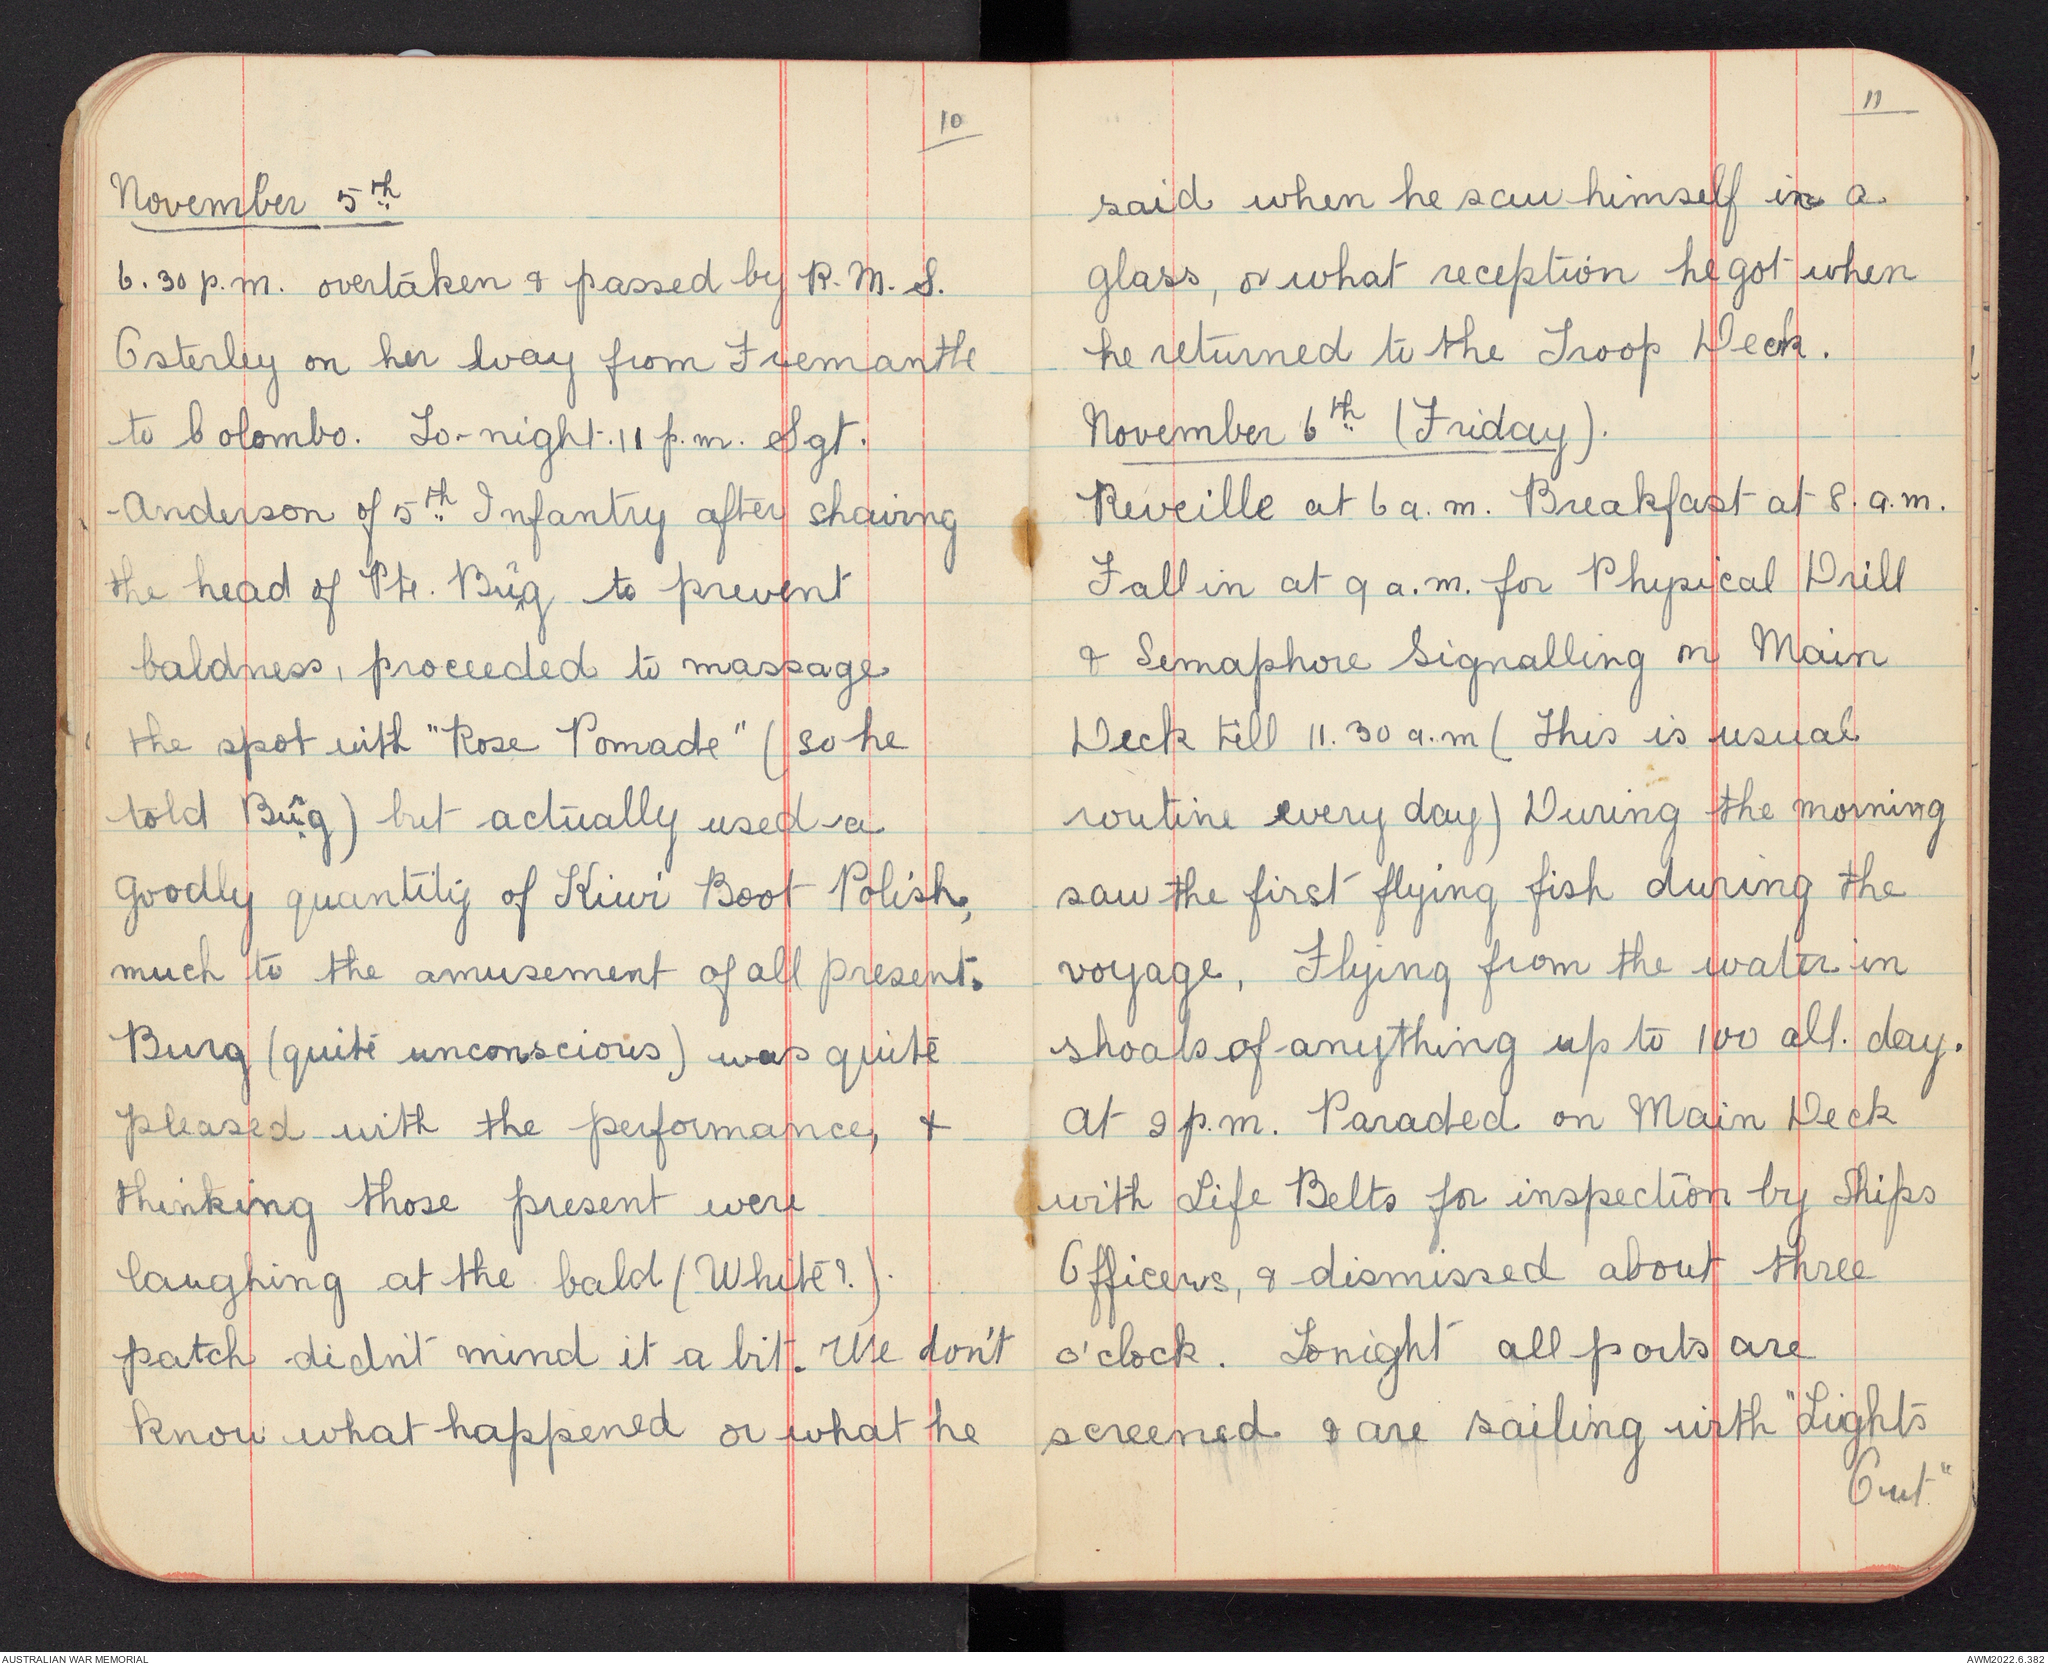 10
November 5th
6.30 p.m. overtaken & passed by R.M.S.
Osterley on her way from Fremantle
to Colombo. To-night. 11 p.m. Sgt.
Anderson of 5th Infantry after shaving
the head of Pte. Burg to prevent
baldness, proceeded to massage
the spot with "Rose Pomade" (so he
told Burg) but actually used a
goodly quantity of Kiwi Boot Polish,
much to the amusement of all present.
Burg (quite unconscious) was quite
pleased with the performance, &
thinking those present were
laughing at the bald (White?).
patch didn't mind it a bit. We don't
know what happened or what he
11
said when he saw himself in a
glass, or what reception he got when
he returned to the Troop Deck.
November 6th (Friday).
Reveille at 6 a.m. Breakfast at 8. a.m.
Fall in at 9 a.m. for Physical Drill
& Semaphore Signalling on Main
Deck till 11.30 a.m ( This is usual
routine every day) During the morning
saw the first flying fish during the
voyage, Flying from the water in
shoals of anything up to 100 all. day.
At 2 p.m. Paraded on Main Deck
with Life Belts for inspection by Ships
Officers, & dismissed about three
o'clock. Tonight all ports are
screened & are sailing with "Lights
Out"
AUSTRALIAN WAR MEMORIAL
AWM2022.6.382